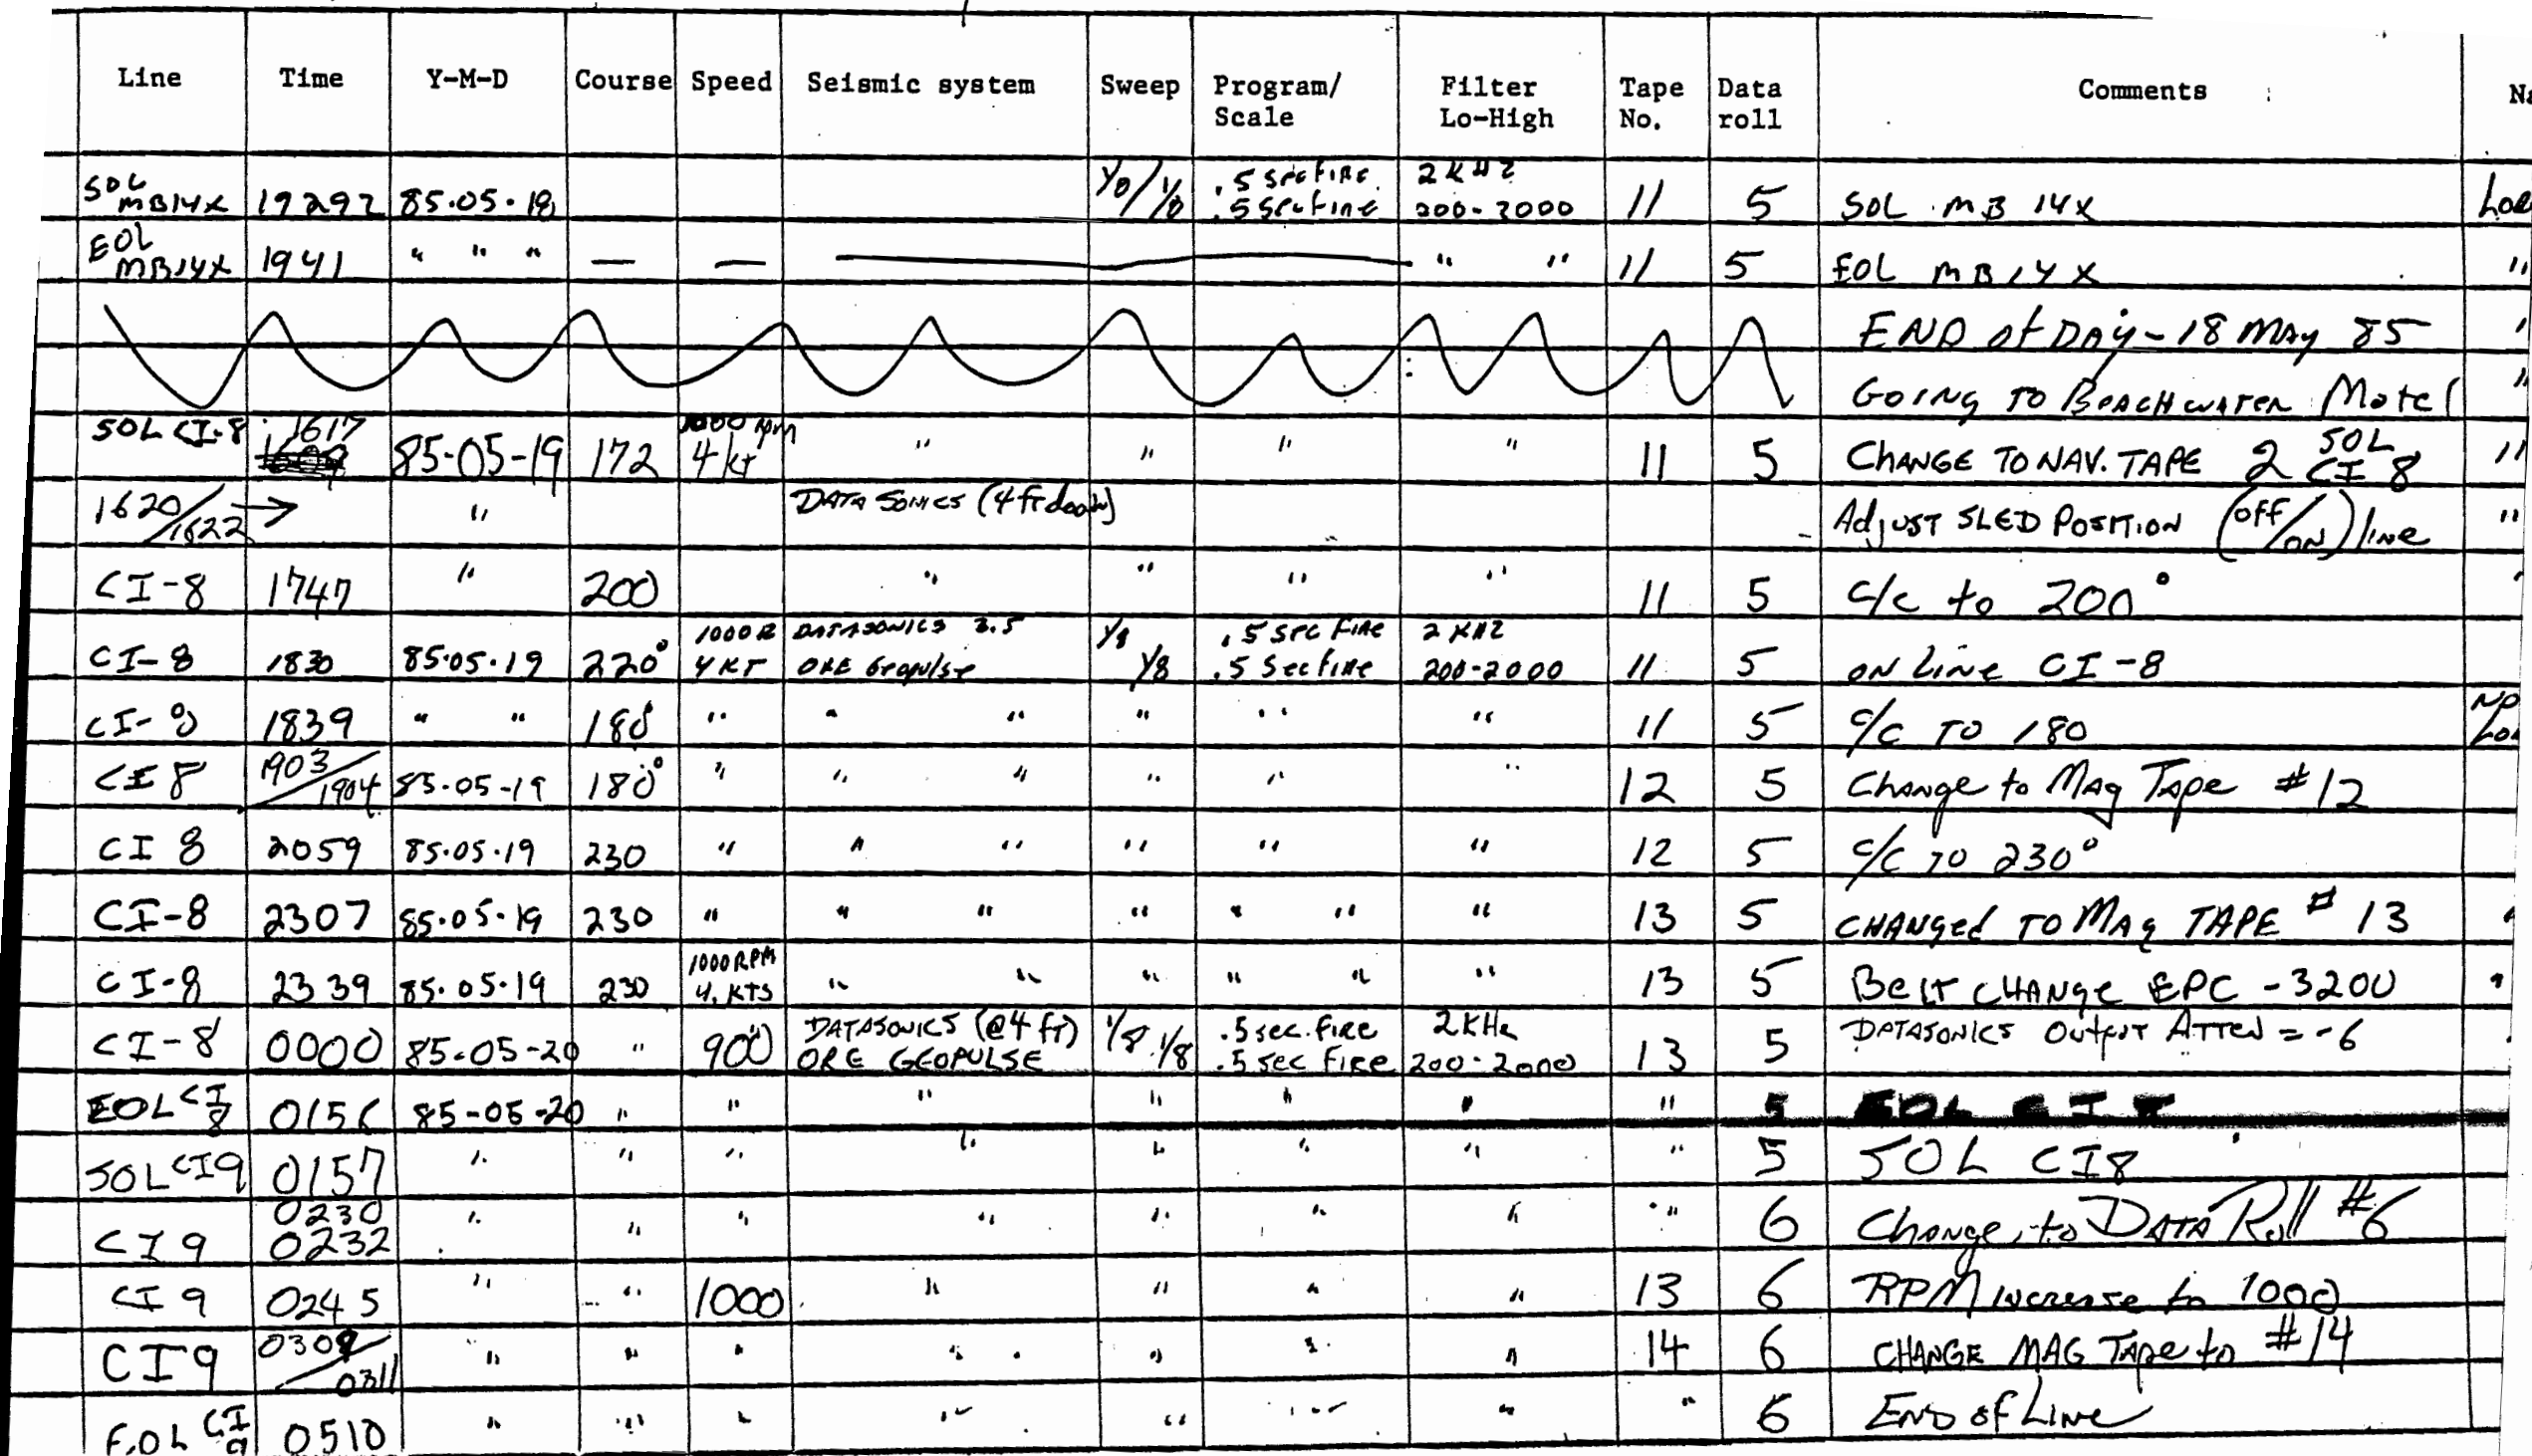 Line Time Y-M-D Course Speed Seismic system Sweep Program/Scale Filter Lo-High Tape No. Data roll Comments
SOL MB14X 1929Z 85.05.18 1/8 / 1/8 .5 sec FIRE .5 sec Fire 2 KHZ 200-2000 11 5 SOL MB 14X
EOL MB14X 1941 " " " — — — " " 11 5 EOL MB14X "
END of DAY - 18 MAY 85
GOING TO BEACHWATER Motel "
SOL CI-8 1617 85-05-19 172 1000 rpm 4 kt " " " " 11 5 CHANGE TO NAV. TAPE 2 SOL CI 8 "
1620/1622 → " DATASONICS (4 ft down) Adjust SLED POSITION (off/ON) line "
CI-8 1747 " 200 " " " " 11 5 c/c to 200°
CI-8 1830 85.05.19 220° 1000 R 4 KT DATASONICS 3.5 ORE Geopulse 1/8 1/8 .5 sec FIRE .5 Sec fire 2 KHZ 200-2000 11 5 ON Line CI-8
CI-8 1839 " " 180° " " " " " " 11 5 c/c TO 180
CI 8 1903/1904 85-05-19 180° " " " " " " 12 5 Change to Mag Tape #12
CI 8 2059 85.05.19 230 " " " " " " 12 5 c/c TO 230°
CI-8 2307 85.05.19 230 " " " " " " " 13 5 CHANGed TO MAg TAPE # 13
CI-8 2339 85.05.19 230 1000 RPM 4. KTS " " " " " " 13 5 BeLT CHANge EPC -3200
CI-8 0000 85-05-20 " 900 DATASONICS (@4 ft) ORE GEOPULSE 1/8 1/8 .5 sec. fire .5 sec Fire 2 KHz 200-2000 13 5 DATASONICS Output ATTEN = -6
EOL CI 8 0156 85-05-20 " " " " " " " 5 EOL CI 8
SOL CI9 0157 " " " " " " " " 5 SOL CI8
CI 9 0230 0232 " " " " " " " " 6 Change to DATA Roll #6
CI 9 0245 " " 1000 " " " " 13 6 RPM increase to 1000
CI9 0309/0311 " " " " " " " 14 6 CHANGE MAG TAPe to #14
EOL CI 9 0510 " " " " " " " " 6 END of Line